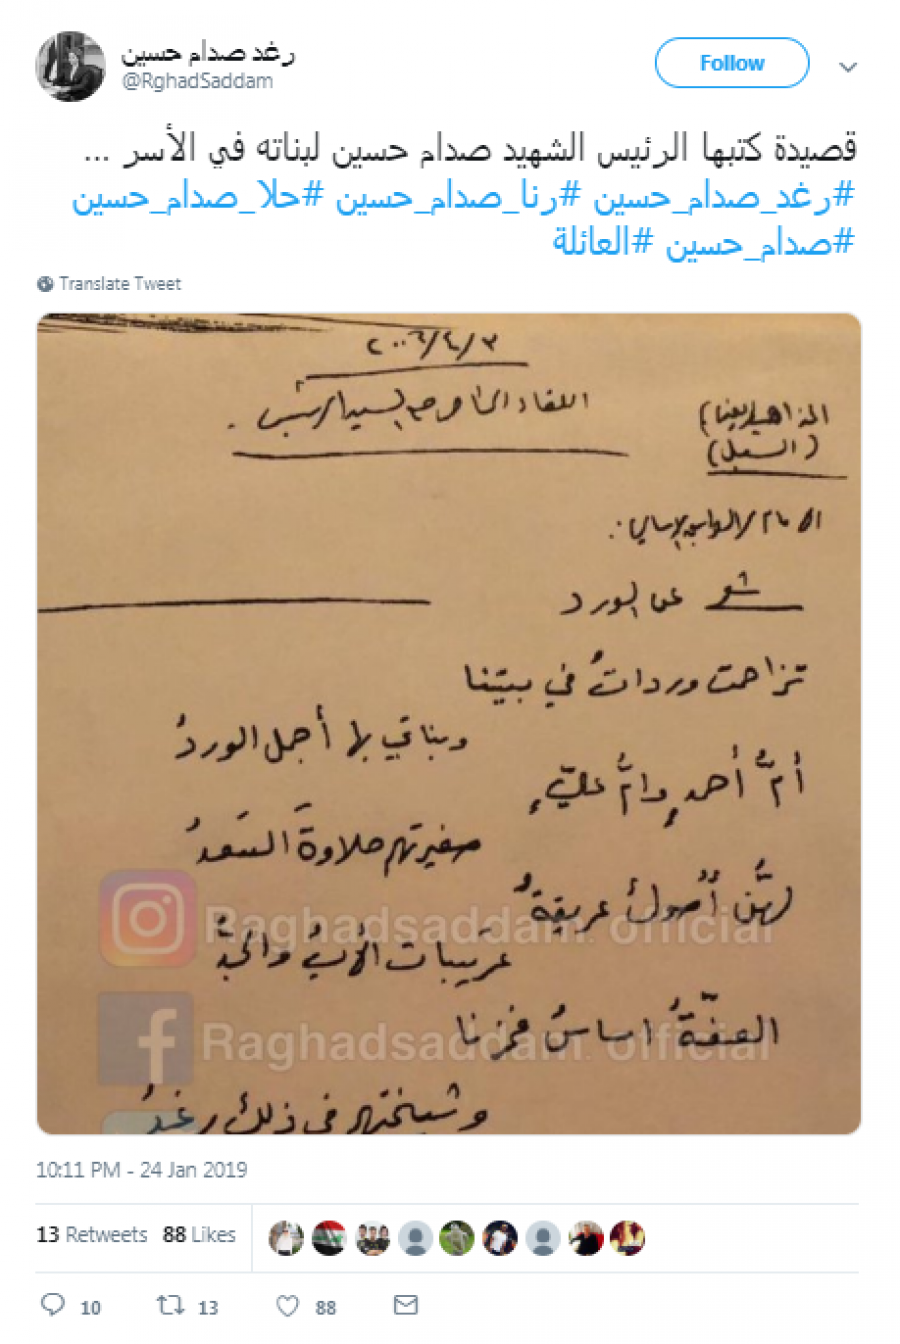 رغد صدام حسين
@RghadSaddam
Follow
قصيدة كتبها الرئيس الشهيد صدام حسين لبناته في الأسر ...
#رغد_صدام_حسين #رنا_صدام_حسين #حلا_صدام_حسين
#صدام_حسين #العائلة
Translate Tweet
٣/٤/٢٠٠٦
اللقاء السيد الرئيس.
(السبيل)
شعر عن الورد
تزاحمت ورداتُ في بيتنا
وبناتي بها أجمل الوردُ
أمُّ أحمدٍ وامُّ عليٍّ
صغيرتهم حلاوةَ السَعدُ
لهنَّ أصُولُ عريقةُ
عريبات الأبُ والجدُّ
العفّةُ اساسُ فخرنا
وشيختهم في ذلك رغدُ
Raghadsaddam official
Raghadsaddam official
10:11 PM - 24 Jan 2019
13 Retweets 88 Likes
10 13 88